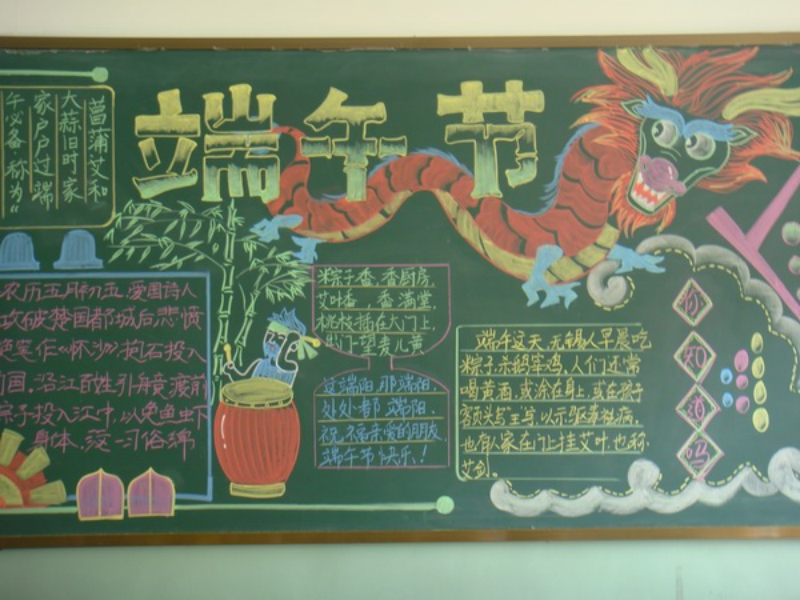 端午节
菖蒲艾和
大蒜旧时家
家户户过端
午必备，称为“
农历五月初五，爱国诗人
攻破楚国都城后悲愤
绝笔作《怀沙》抱石投入
国，沿江百姓引舟竞渡前
粽子投入江中，以免鱼虾
身体，这一习俗绵
粽子香，香厨房，
艾叶香，香满堂，
桃枝插在大门上，
出门一望麦儿黄
这端阳，那端阳，
处处都端阳，
祝福亲爱的朋友，
端午节快乐！
端午这天，无锡人早晨吃
粽子，杀鹅宰鸡，人们还常
喝黄酒，或涂在身上，或在孩子
额头写“王”写，以示驱
也有人家在门上挂艾叶，也称
艾剑。
你
知
道
吗